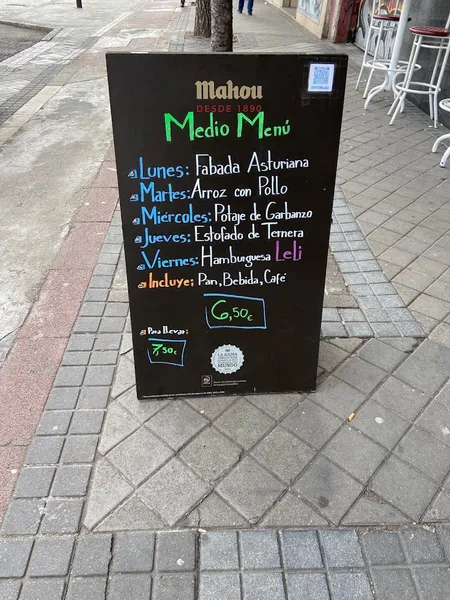 Mahou
DESDE 1890
Medio Menú
Lunes: Fabada Asturiana
Martes: Arroz con Pollo
Miércoles: Potaje de Garbanzo
Jueves: Estofado de Ternera
Viernes: Hamburguesa Leli
Incluye: Pan, Bebida, Café
6,50€
Para llevar:
7,50€